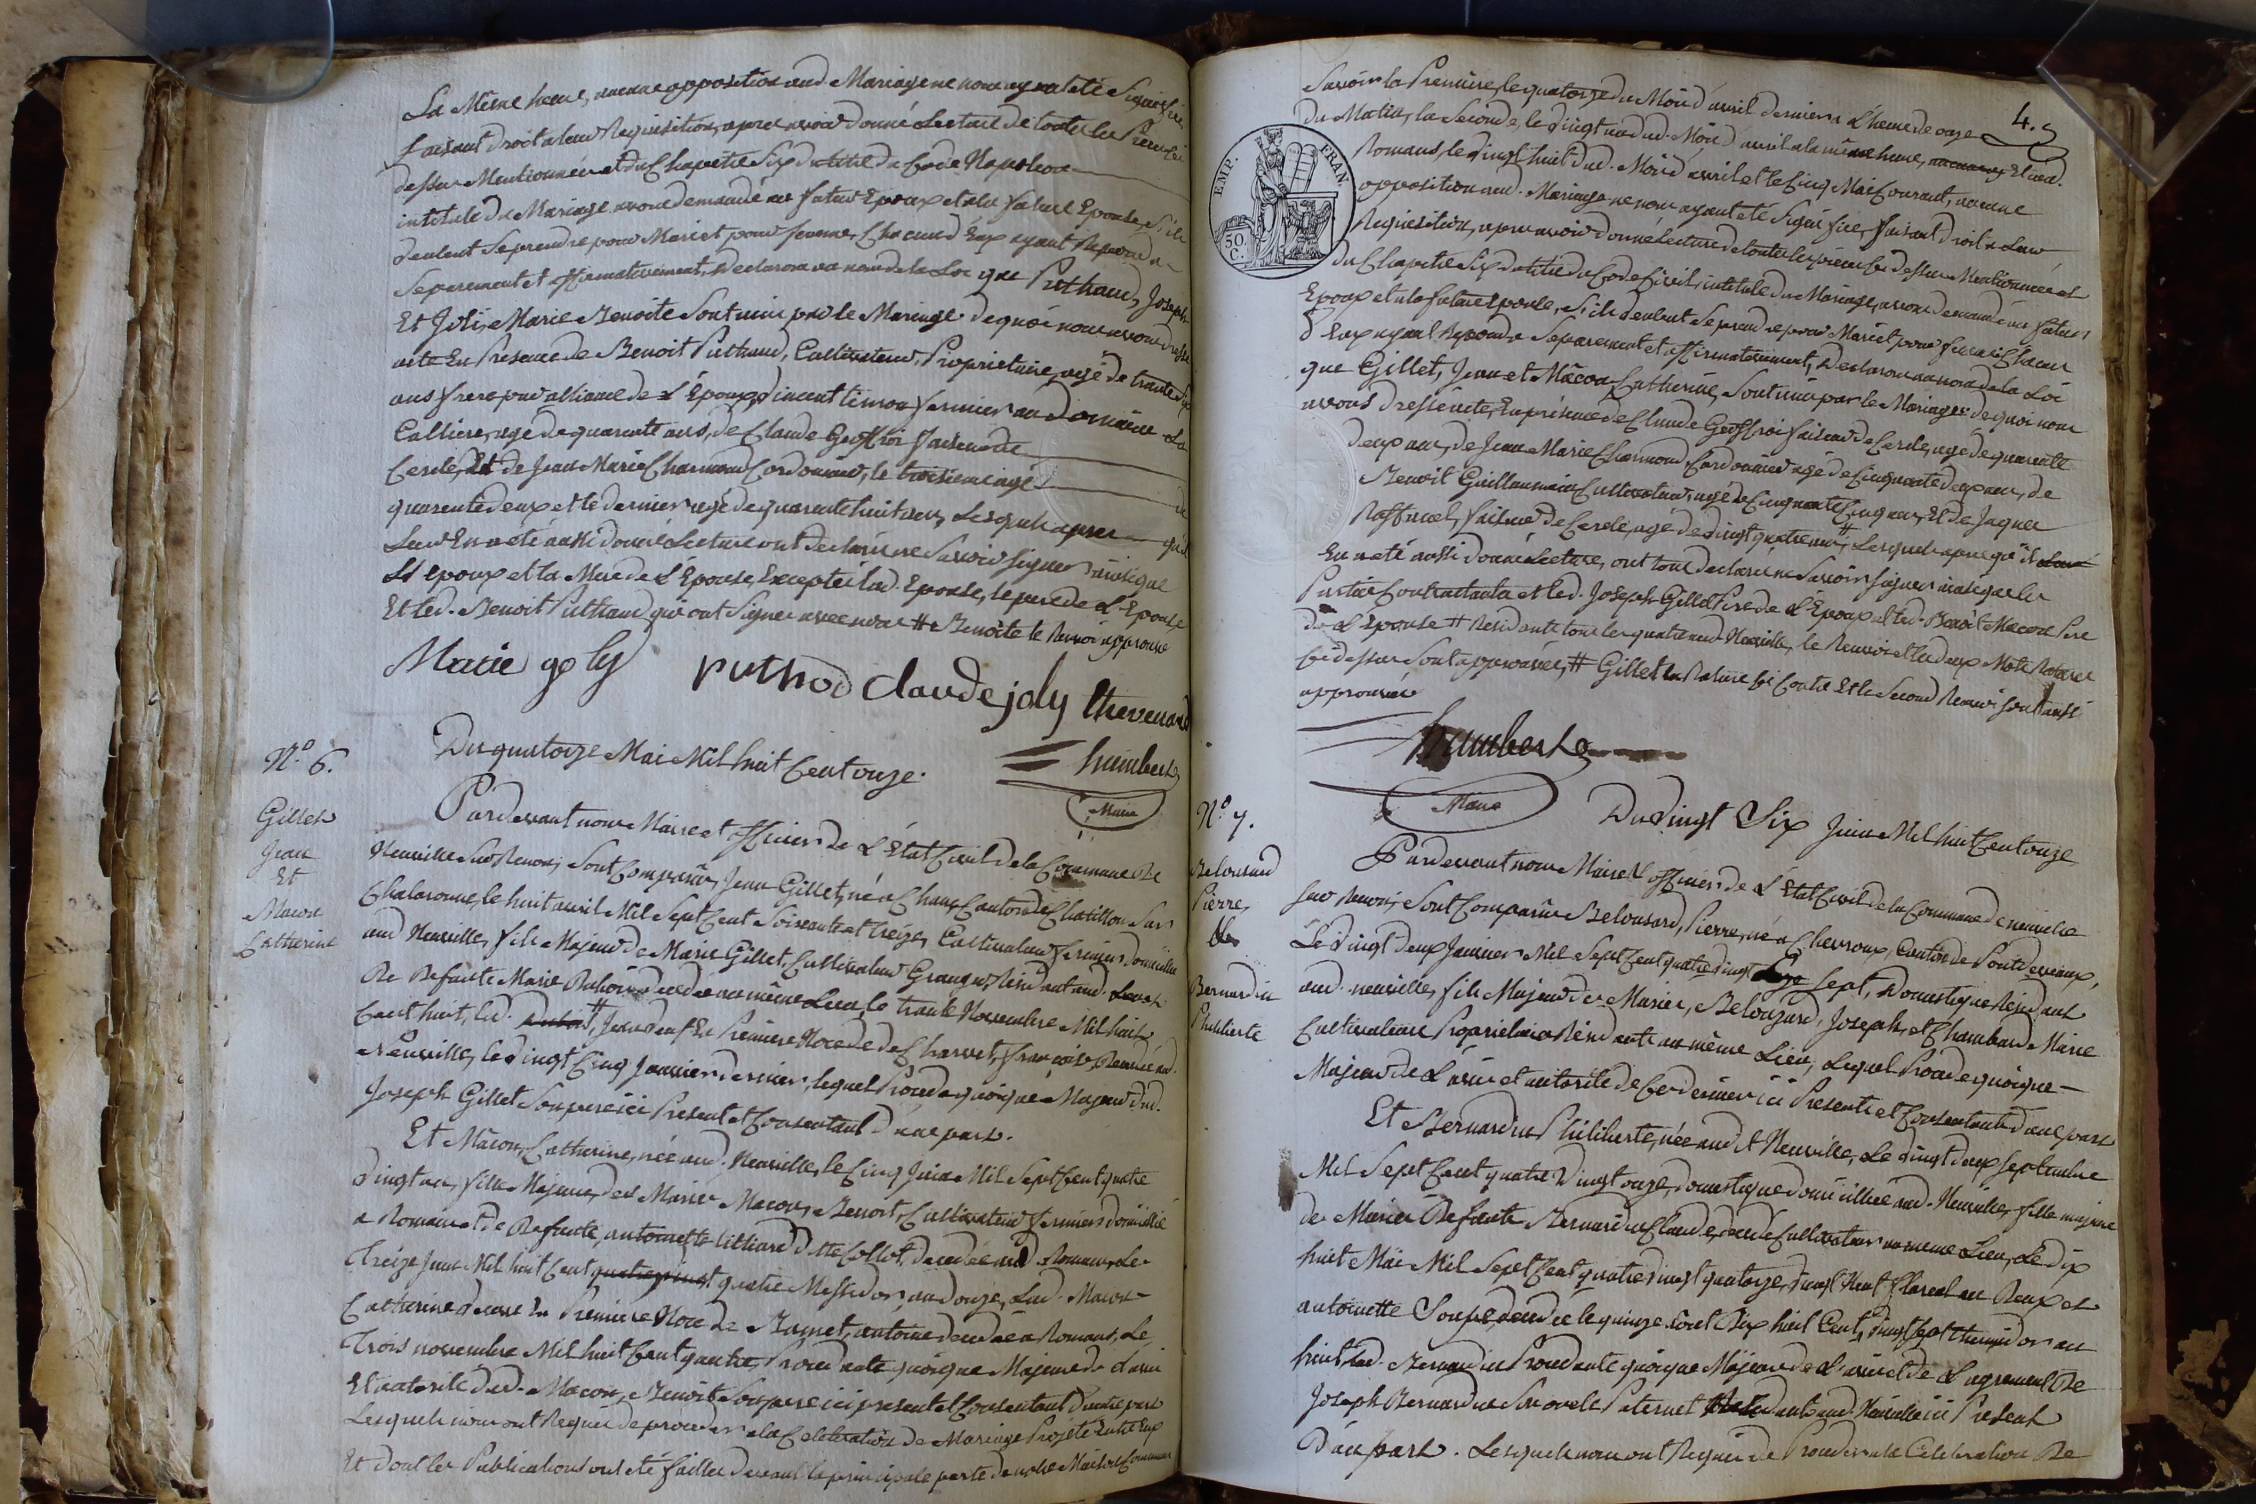 La Même heure, aucune opposition aud Mariage ne nous ayant été Signifiée,
faisant droit a leur Requisition, apres avoir donné Lecture de toutes les Pieces Ci
dessus Mentionnées et du Chapitre Six du titre du Code Napoleon
intitulé du Mariage avons demandé au futur Epoux et a la future Epouse, S'ils
veulent Se prendre pour Mari et pour femme, Chacun d'Eux ayant Repondu
Separement et affirmativement, Declarons au nom de la Loi que Puthaud, Joseph
Et Joli, Marie Benoite Sont unis par le Mariage de quoi nous avons dressé
acte En Presence de Benoit Puthaud, Cultivateur, Proprietaire, agé de trante Six
ans frere par alliance de L'Epoux, Vincent fermier au Domaine La
Calliere, agé de quarante ans, de Claude Geoffroi faiseur de
Cercle, Et de Jean Marie Charmond Cordonnier, le troisieme agé de
quarente deux et le dernier agé de quarente huit ans, Lesquels apres qu'il
Leur En a été aussi donné Lecture ont declaré ne Savoir Signer ainsi que
L'Epoux et la Mere de L'Epouse, Excepté lad. Epouse, le pere de L'Epouse
Et led. Benoit Puthaud qui ont Signer avec nous # Benoite le Renvoi approuvé
Marie joly puthod Claude joly thevenard
humbert
Maire
N.º 6.
Gillet
Jean
Et
Macon
Catherine
Du quatorze Mai Mil huit Cent onze.
Pardevant nous Maire et officier de L'État Civil de la Commune De
Neuville Sur Renon, Sont Comparus, Jean Gillet, né a Chanx Canton de Chatillon Sur
Chalaronne, le huit avril Mil Sept Cent Soixante et treize, Cultivateur fermier domicilié
aud Neuville, fils Majeur de Marie Gillet, Cultivateur Granger Resident aud. Lieu et
De Defunte Marie decedée au même Lieu, le trante Novembre Mil huit
Cent huit, led. #, Jean Veuf En Premiere Noce de Charvet, Françoise, Decedée aud.
Neuville, le vingt Cinq Janvier dernier, lequel Procede quoique Majeur dud.
Joseph Gillet Son pere ici Present et Consentant d'une part.
Et Mâcon, Catherine, née aud. Neuville, le Cinq Juin Mil Sept Cent quatre
vingt un, fille Majeure, des Mariés Macon, Benoit, Cultivateur fermier domicilié
a Romans et de Defunte, antoinette ditte Collot, decedée aud Romans, Le
treize Juin Mil huit Cent quatrevingt quatre Messidor, an douze, Lad. Macon
Catherine Veuve En Premiere Noce de antoine decedé a Romans, Le
trois novembre Mil huit Cent quatre, Procedante quoique Majeure de L'avis
Et autorité dud. Macon, Benoit Son pere ici present et Consentant D'autre part
Lesquels nous ont Requis de proceder a la Celebration du Mariage Projeté Entr'Eux
Et dont les Publications ont été faittes devant la principale porte de notre Maison Commune
4.
EMP. FRAN.
50.
C.
Savoir la Premiere, le quatorze du Mois d'avril dernier a L'heure de onze
du Matin, la Seconde, le vingt un dud. Mois d'avril a la même heure, Et aud.
Romans, le vingt huit dud. Mois d'avril et le Cinq Mai Courant, aucune
opposition aud. Mariage ne nous ayant été Signifiée, faisant droit a Leur
Requisition, apres avoir donné Lecture de toutes les pieces Ci dessus Mentionnées et
du Chapitre Six du titre du Code Civil, intitulé du Mariage, avons demandé au futur
Epoux et a la future Epouse, S'ils veulent Se prendre pour Mari et pour femme Chacun
d'Eux ayant Repondu Separement et affirmativement, Declarons au nom de la Loi
que Gillet, Jean et Mâcon Catherine, Sont unis par le Mariage de quoi nous
avons dressé acte, En présence de Claude Geoffroi faiseur de Cercle, agé de quarente
deux ans, de Jean Marie Charmond Cordonnier agé de Cinquante deux ans, de
Benoit Guillaumain Cultivateur, agé de Cinquante Cinq ans, Et de Jaques
faiseur de Cercle, agé de vingt quatre ans #, Lesquels apres qu'il Leur
En a été aussi donné Lecture, ont tous declaré ne Savoir Signer ainsi que les
Parties Contractantes et led. Joseph Gillet Pere de L'Epoux et led. Benoit Macon Pere
de L'Epouse # Residents tous les quatre aud. Neuville, le Renvoi et les deux Mots Raturés
Ci dessus Sont approuvés, # Gillet la Rature Ci Contre Et le Second Renvoi Sont aussi
approuvés
humbert
Maire
N.º 7.
Belouzard
Pierre,
Et
Bernardin
Philiberte
Du vingt Six Juin Mil huit Cent onze
Pardevant nous Maire et officier de L'État Civil de la Commune de neuville
Sur Renon, Sont Comparus Belouzard, Pierre, né a Chevroux, Canton de Pontdevaux,
Le vingt deux Janvier Mil Sept Cent quatre vingt Sept, Domestique Resident
aud. neuville, fils Majeur des Mariés, Belouzard, Joseph, et Chambard Marie
Cultivateurs Proprietaires Résidants au même Lieu, Lequel Procede quoique
Majeur de L'avis et autorité de Ce dernier ici Present et Consentant d'une part
Et Bernardin Philiberte, née aud.t Neuville, Le vingt deux Septembre
Mil Sept Cent quatre Vingt onze, domestique domicilliée aud. Neuville, fille majeure
des Mariés Defunts Bernardin Claude, decedé Cultivateur au meme Lieu, Le dix
huit Mai Mil Sept Cent quatre vingt quatorze, vingt Neuf floreal an Deux et
antoinette decedée le quinze aout Dix huit Cent, vingt Sept thermidor an
huit, Lad. Bernardin Procedante quoique Majeure de L'avis et de L'agrement De
Joseph Bernardin Son oncle Paternel aud. Neuville ici Present
D'aut. part. Lesquels nous ont Requis de Proceder a la Celebration De